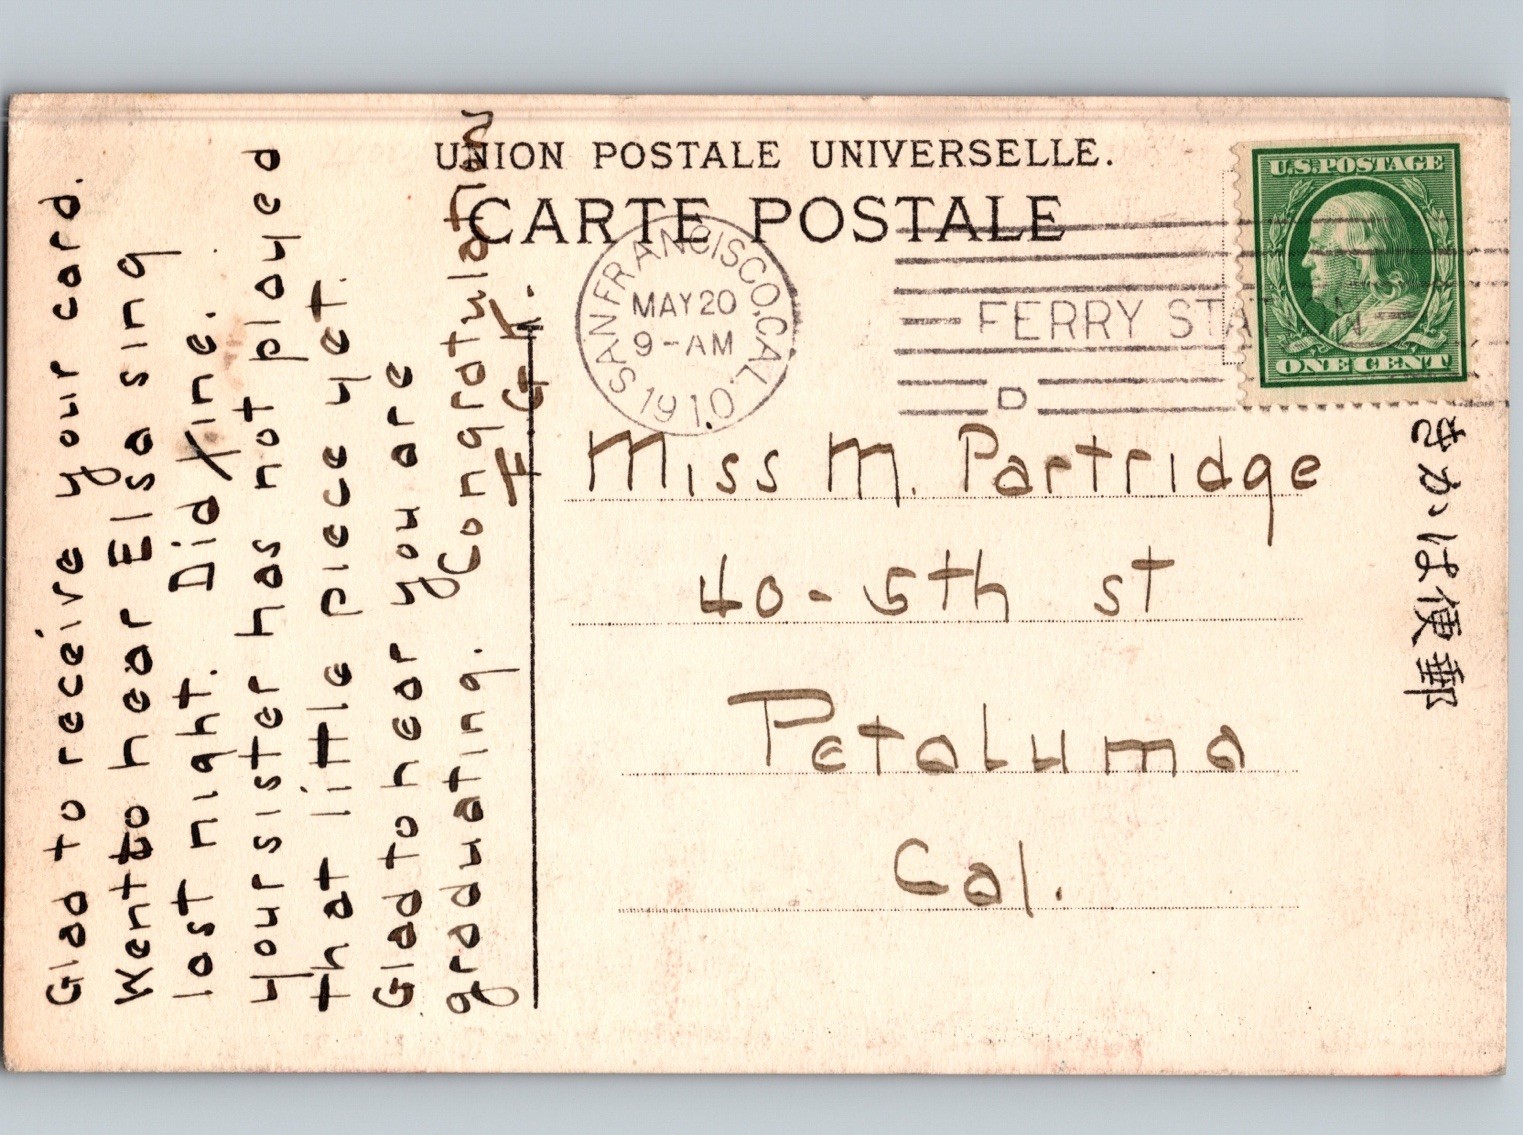 UNION POSTALE UNIVERSELLE.
CARTE POSTALE
U.S. POSTAGE
ONE CENT
SAN FRANCISCO, CAL.
MAY 20
9-AM
1910
FERRY STATION
D
Glad to receive your card.
Went to hear Elsa sing
last night. Did fine.
your sister has not played
that little piece yet.
Glad to hear you are
graduating. Congratulation
F. G. K.
Miss M. Partridge
40-5th st
Petaluma
Cal.
郵便はかき